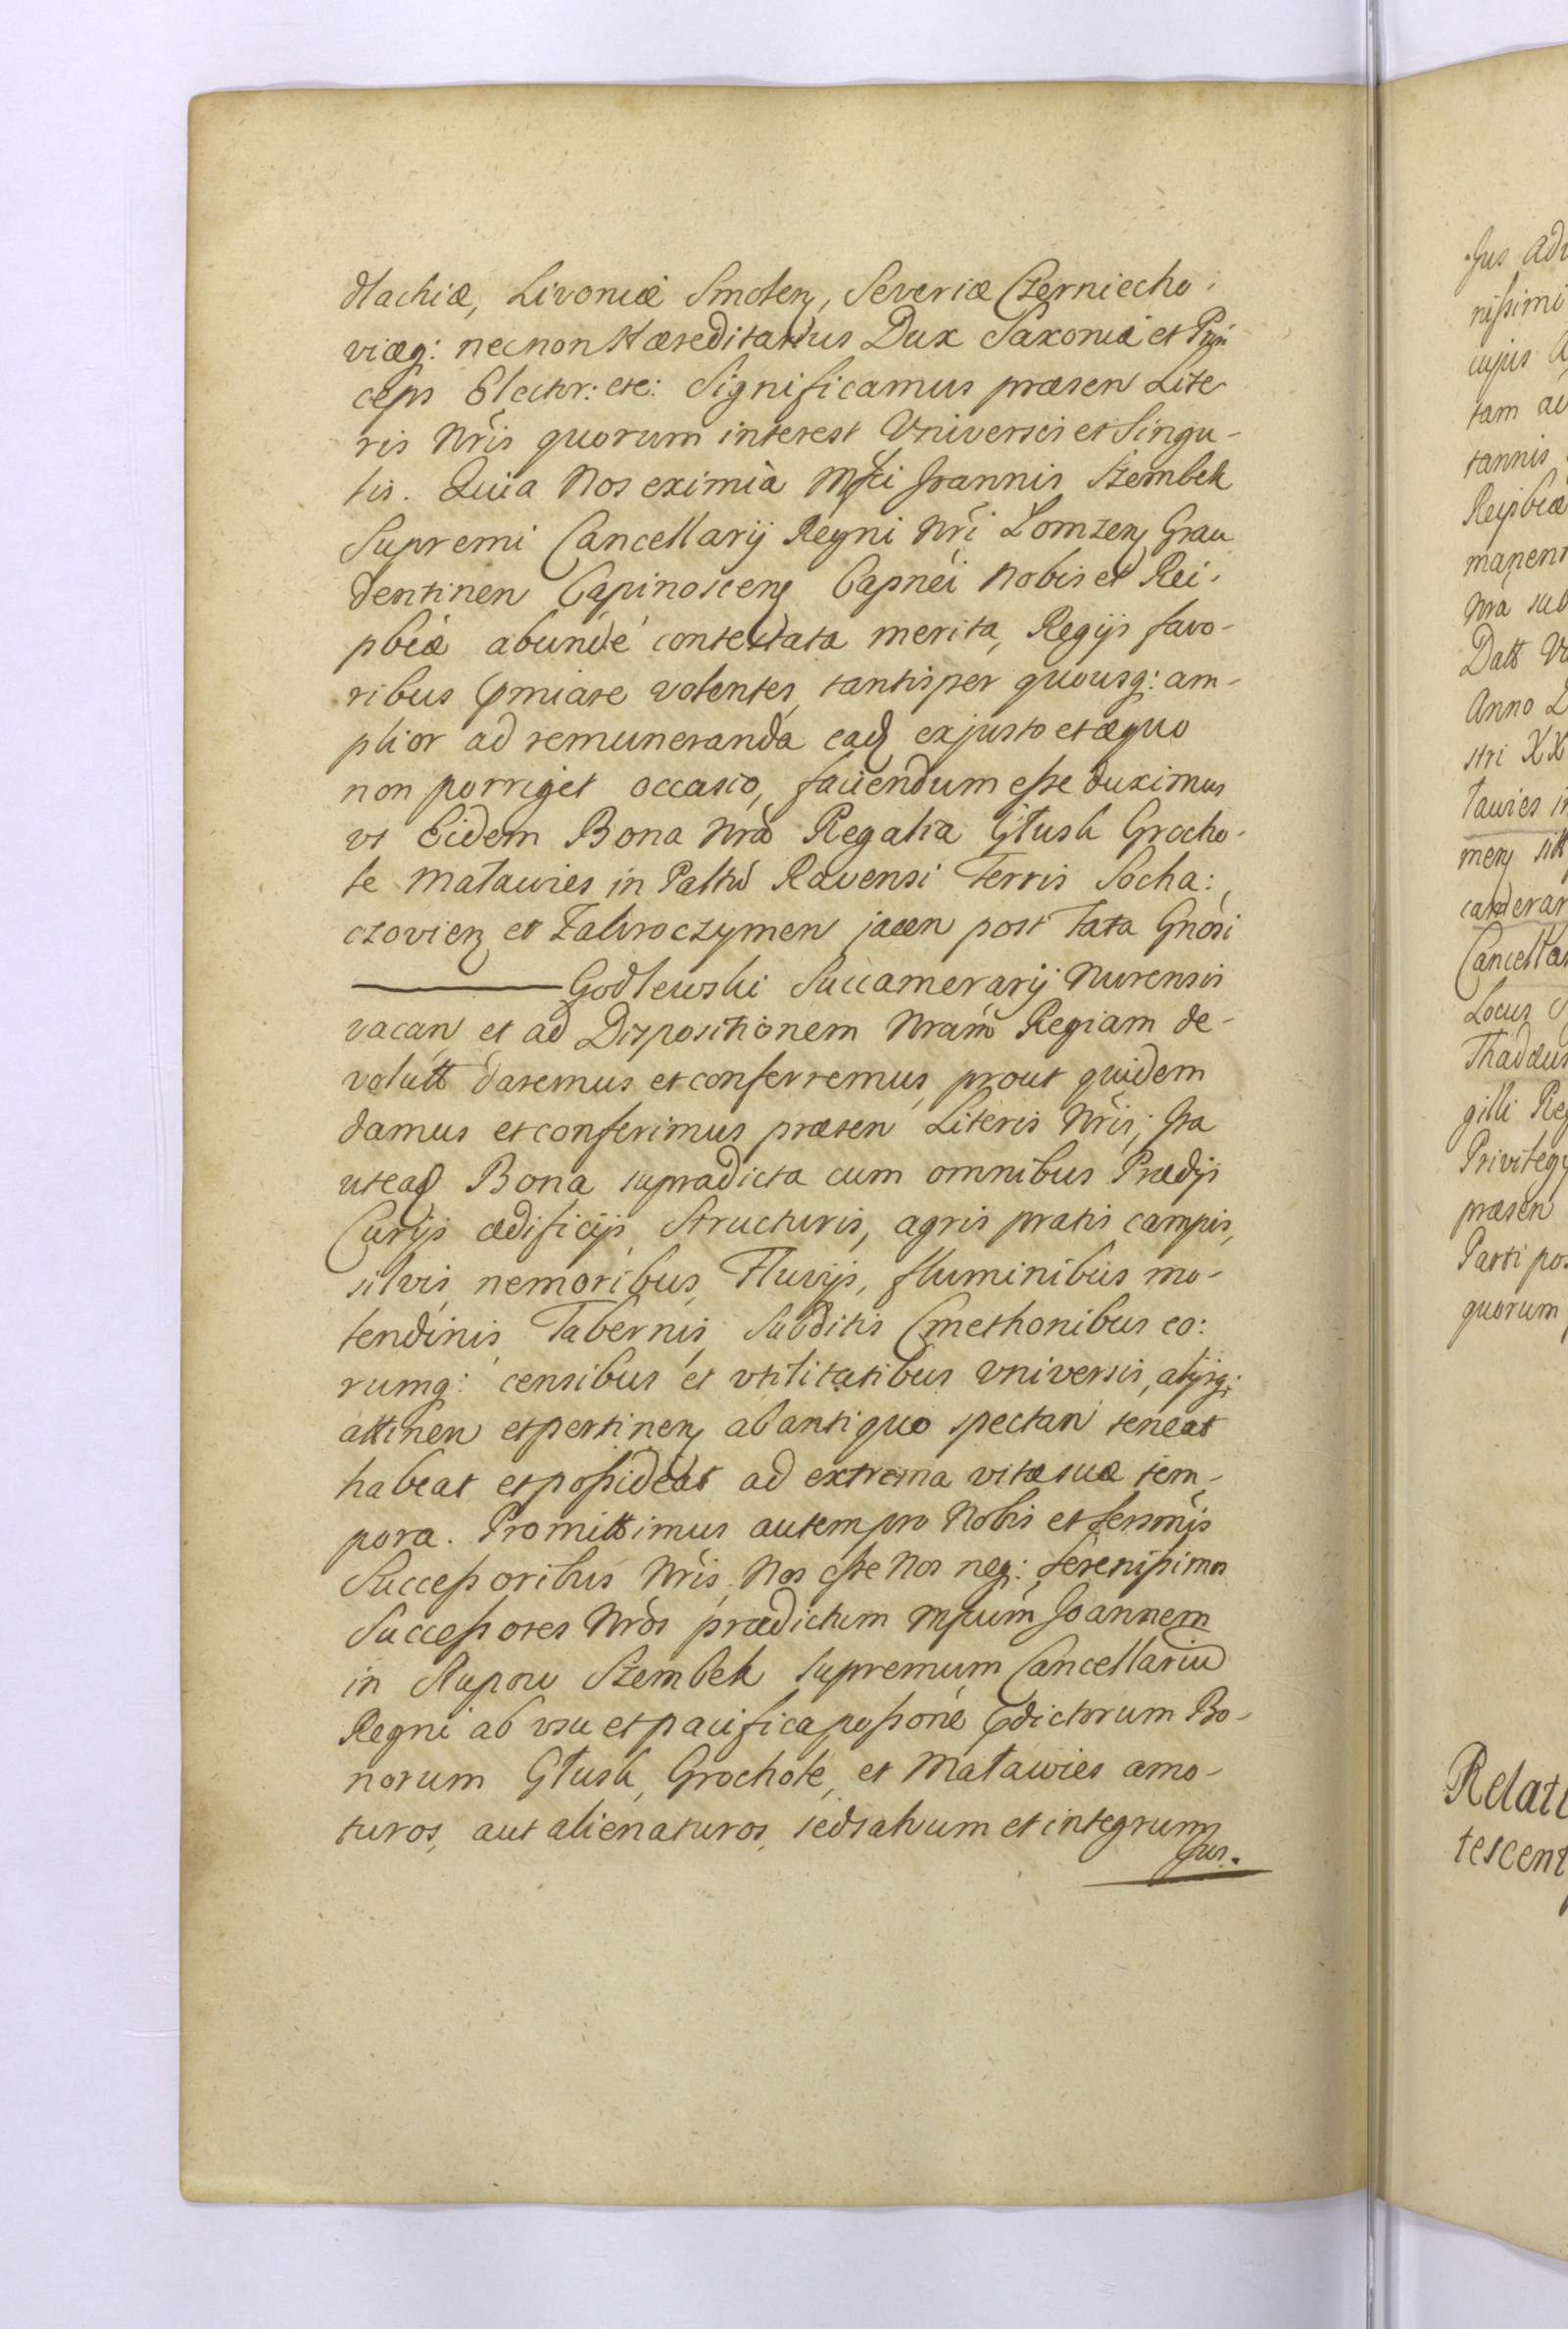 dlachiæ, Livoniæ Smolen, Severiæ Czerniecho:
viæq: necnon Hæreditarius Dux Saxoniæ et Prin
ceps Elector: etc: Significamus præsen Lite
ris Nris quorum interest Universis et Singu-
lis. Quia Nos eximia Mfci Joannis Szembek
Supremi Cancellarij Regni Nri Lomzen Grau
dentinen Capinoscen Capnei Nobis et Rei-
pbcæ abunde contestata merita, Regijs favo-
ribus pmiare volentes, tantisper quousq: am-
plior ad remuneranda ead ex justo et æquo
non porriget occasio, faciendum esse duximus
vt Eidem Bona Nra Regalia Głusk Grocho-
le Matawies in Paltu Ravensi Terris Socha:
czovien et Zakroczymen jacen post Fata Gnosi
——— Godlewski Succamerarij Nurensis
vacan et ad Dispositionem Nram Regiam de-
volutt daremus et conferremus, prout quidem
damus et conferimus præsen Literis Nris; Ita
ut ead Bona supradicta cum omnibus Prædijs
Curijs ædificijs, Structuris, agris pratis campis,
silvis nemoribus, Fluvijs, fluminibus mo-
lendinis Tabernis, Subditis Cmethonibus eo:
rumq: censibus et vtilitatibus vniversis, alijsq;
attinen et pertinen ab antiquo spectan teneat
habeat et possideat ad extrema vitæ suæ tem-
pora. Promittimus autem pro Nobis et Sersmis
Successoribus Nris, Nos esse Nos neq: Serenissimos
Successores Nros prædictum Mfcum Joannem
in Słupow Szembek Supremum Cancellariu
Regni ab vsu et pacifica possone pdictorum Bo-
norum Głusk, Grochole, et Matawies amo-
turos, aut alienaturos, sed salvum et integrum
Jus.
Jus ad
nissimi
cujus
tam
tannis
Reipbcæ
manen
Nra sub
Datt
Anno
stri XX
Cancella
Locus
Thaddæus
gilli Reg
Privileg
præsen
Parti pos
quorum
Relati
tescent